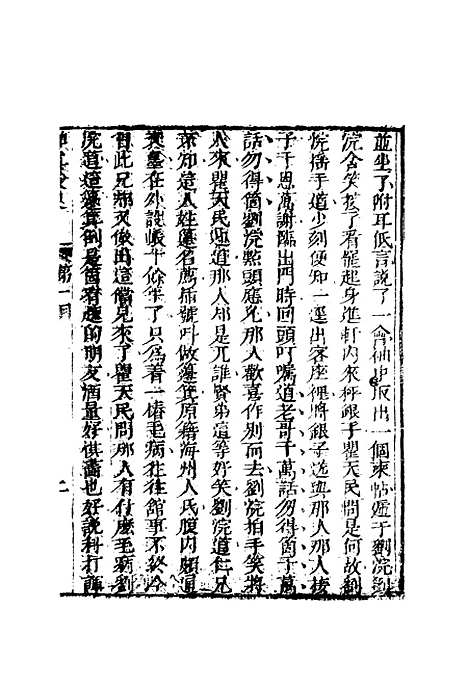 並坐了附耳低言說了一會袖中取出一個柬帖遞于劉浣劉
浣含笑接了看罷起身進軒內來秤銀子瞿天民問是何故劉
浣搖手道少刻便知一逕出客座裡將銀子送與那人那人接
子千恩萬謝臨出門時回頭叮囑道老哥千萬話勿得箇子萬
話勿得箇劉浣點頭應允那人歡喜作別而去劉浣拍手笑將
入來瞿天民迎道那人却是兀誰賢弟這等好笑劉浣道仁兄
不知這人姓蘧名薦插號叫做蘧箕原籍海州人氏腹內頗通
文墨在外設帳十餘年了只為着一樁毛病往往館事不終今
有此兄那又做出這僃兒來了瞿天民問那人有什麼毛病劉
浣道這蘧箕倒是箇有趣的朋友酒量好棋畫也好說科打諢
第一回
二